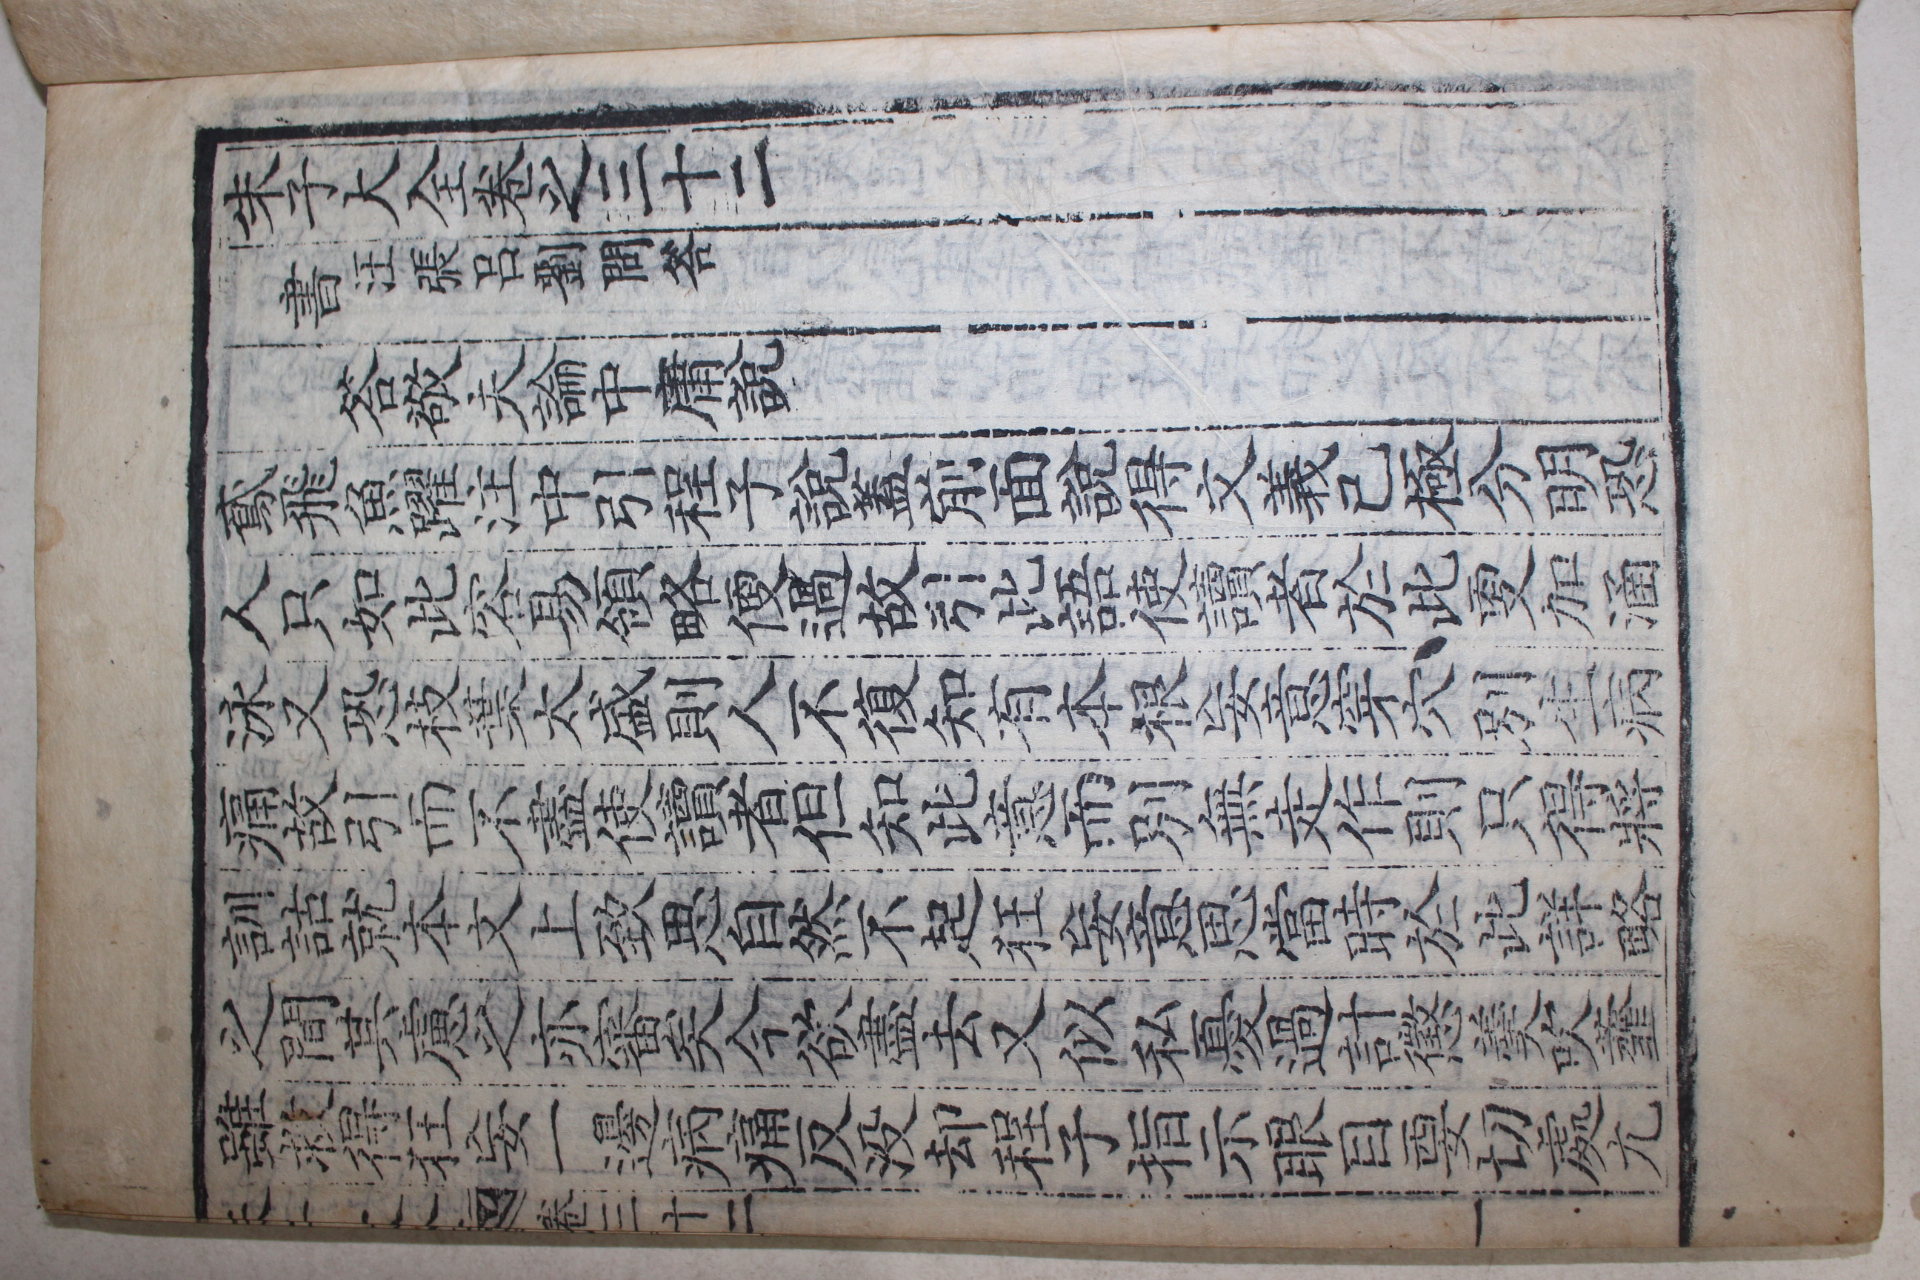 朱子大全卷之三十二
書 汪張呂劉問答
答敬夫論中庸說
鳶飛魚躍注中引程子說蓋前面說得文義已極分明恐
人只如此容易領略便過故引此語使讀者於此更加涵
泳又恐枝葉太盛則人不復知有本根妄意穿穴別生病
痛故引而不盡使讀者但知此意而別無走作則只得將
訓詁就本文上致思自然不起狂妄意思當時於此詳略
之間其慮之亦審矣今欲盡去又似私憂過計懲羹吹虀
雖救得狂妄一邊病痛反没却程子指示眼目要切處尢
卷三十二 一